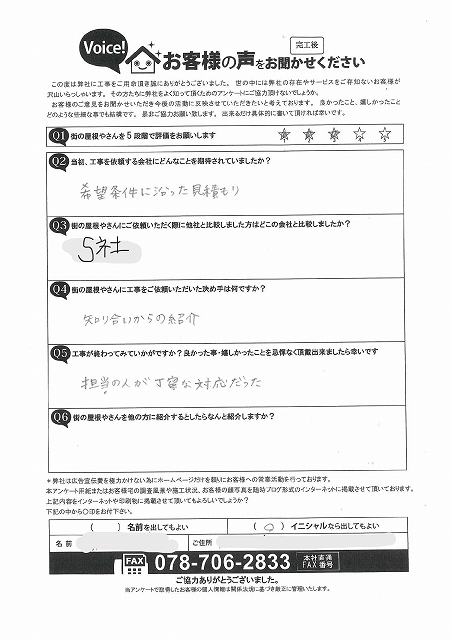 Voice!
完工後
お客様の声をお聞かせください
この度は弊社に工事をご用命頂き誠にありがとうございました。 世の中には弊社の存在やサービスをご存知ないお客様が
沢山いらっしゃいます。 その方たちに弊社をよく知って頂くためのアンケートにご協力頂けないでしょうか。
お客様のご意見をお聞かせいただき今後の活動に反映させていただきたいと考えております。 良かったこと、嬉しかったこと
どのような些細な事でも結構です。 是非ご協力お願い致します。 出来るだけ具体的に書いて頂ければ幸いです。
Q1 街の屋根やさんを5段階で評価をお願いします ★ ★ ★ ☆ ☆
Q2 当初、工事を依頼する会社にどんなことを期待されていましたか?
希望条件に沿った見積もり
Q3 街の屋根やさんにご依頼いただく際に他社と比較しました方はどこの会社と比較しましたか?
S社
Q4 街の屋根やさんに工事をご依頼いただいた決め手は何ですか?
知り合いからの紹介
Q5 工事が終わってみていかがですか?良かった事・嬉しかったことを忌憚なく頂戴出来ましたら幸いです
担当の人が丁寧な対応だった
Q6 街の屋根やさんを他の方に紹介するとしたらなんと紹介しますか?
*弊社は広告宣伝費を極力かけない為にホームページだけを頼りにお客様への営業活動を行っております。
本アンケート用紙またはお客様宅の調査風景や施工状況、お客様の顔写真を随時ブログ形式のインターネットに掲載させて頂いております。
上記内容をインターネットや印刷物に掲載させて頂いてもよろしいでしょうか?
下記の中から〇印をお付下さい。
( ) 名前を出してもよい ( ○ ) イニシャルなら出してもよい
名前 ご住所
FAX 078-706-2833 本社直通 FAX番号
ご協力ありがとうございました。
当アンケートで取得したお客様の個人情報は関係法規に基づき厳正に管理いたします。